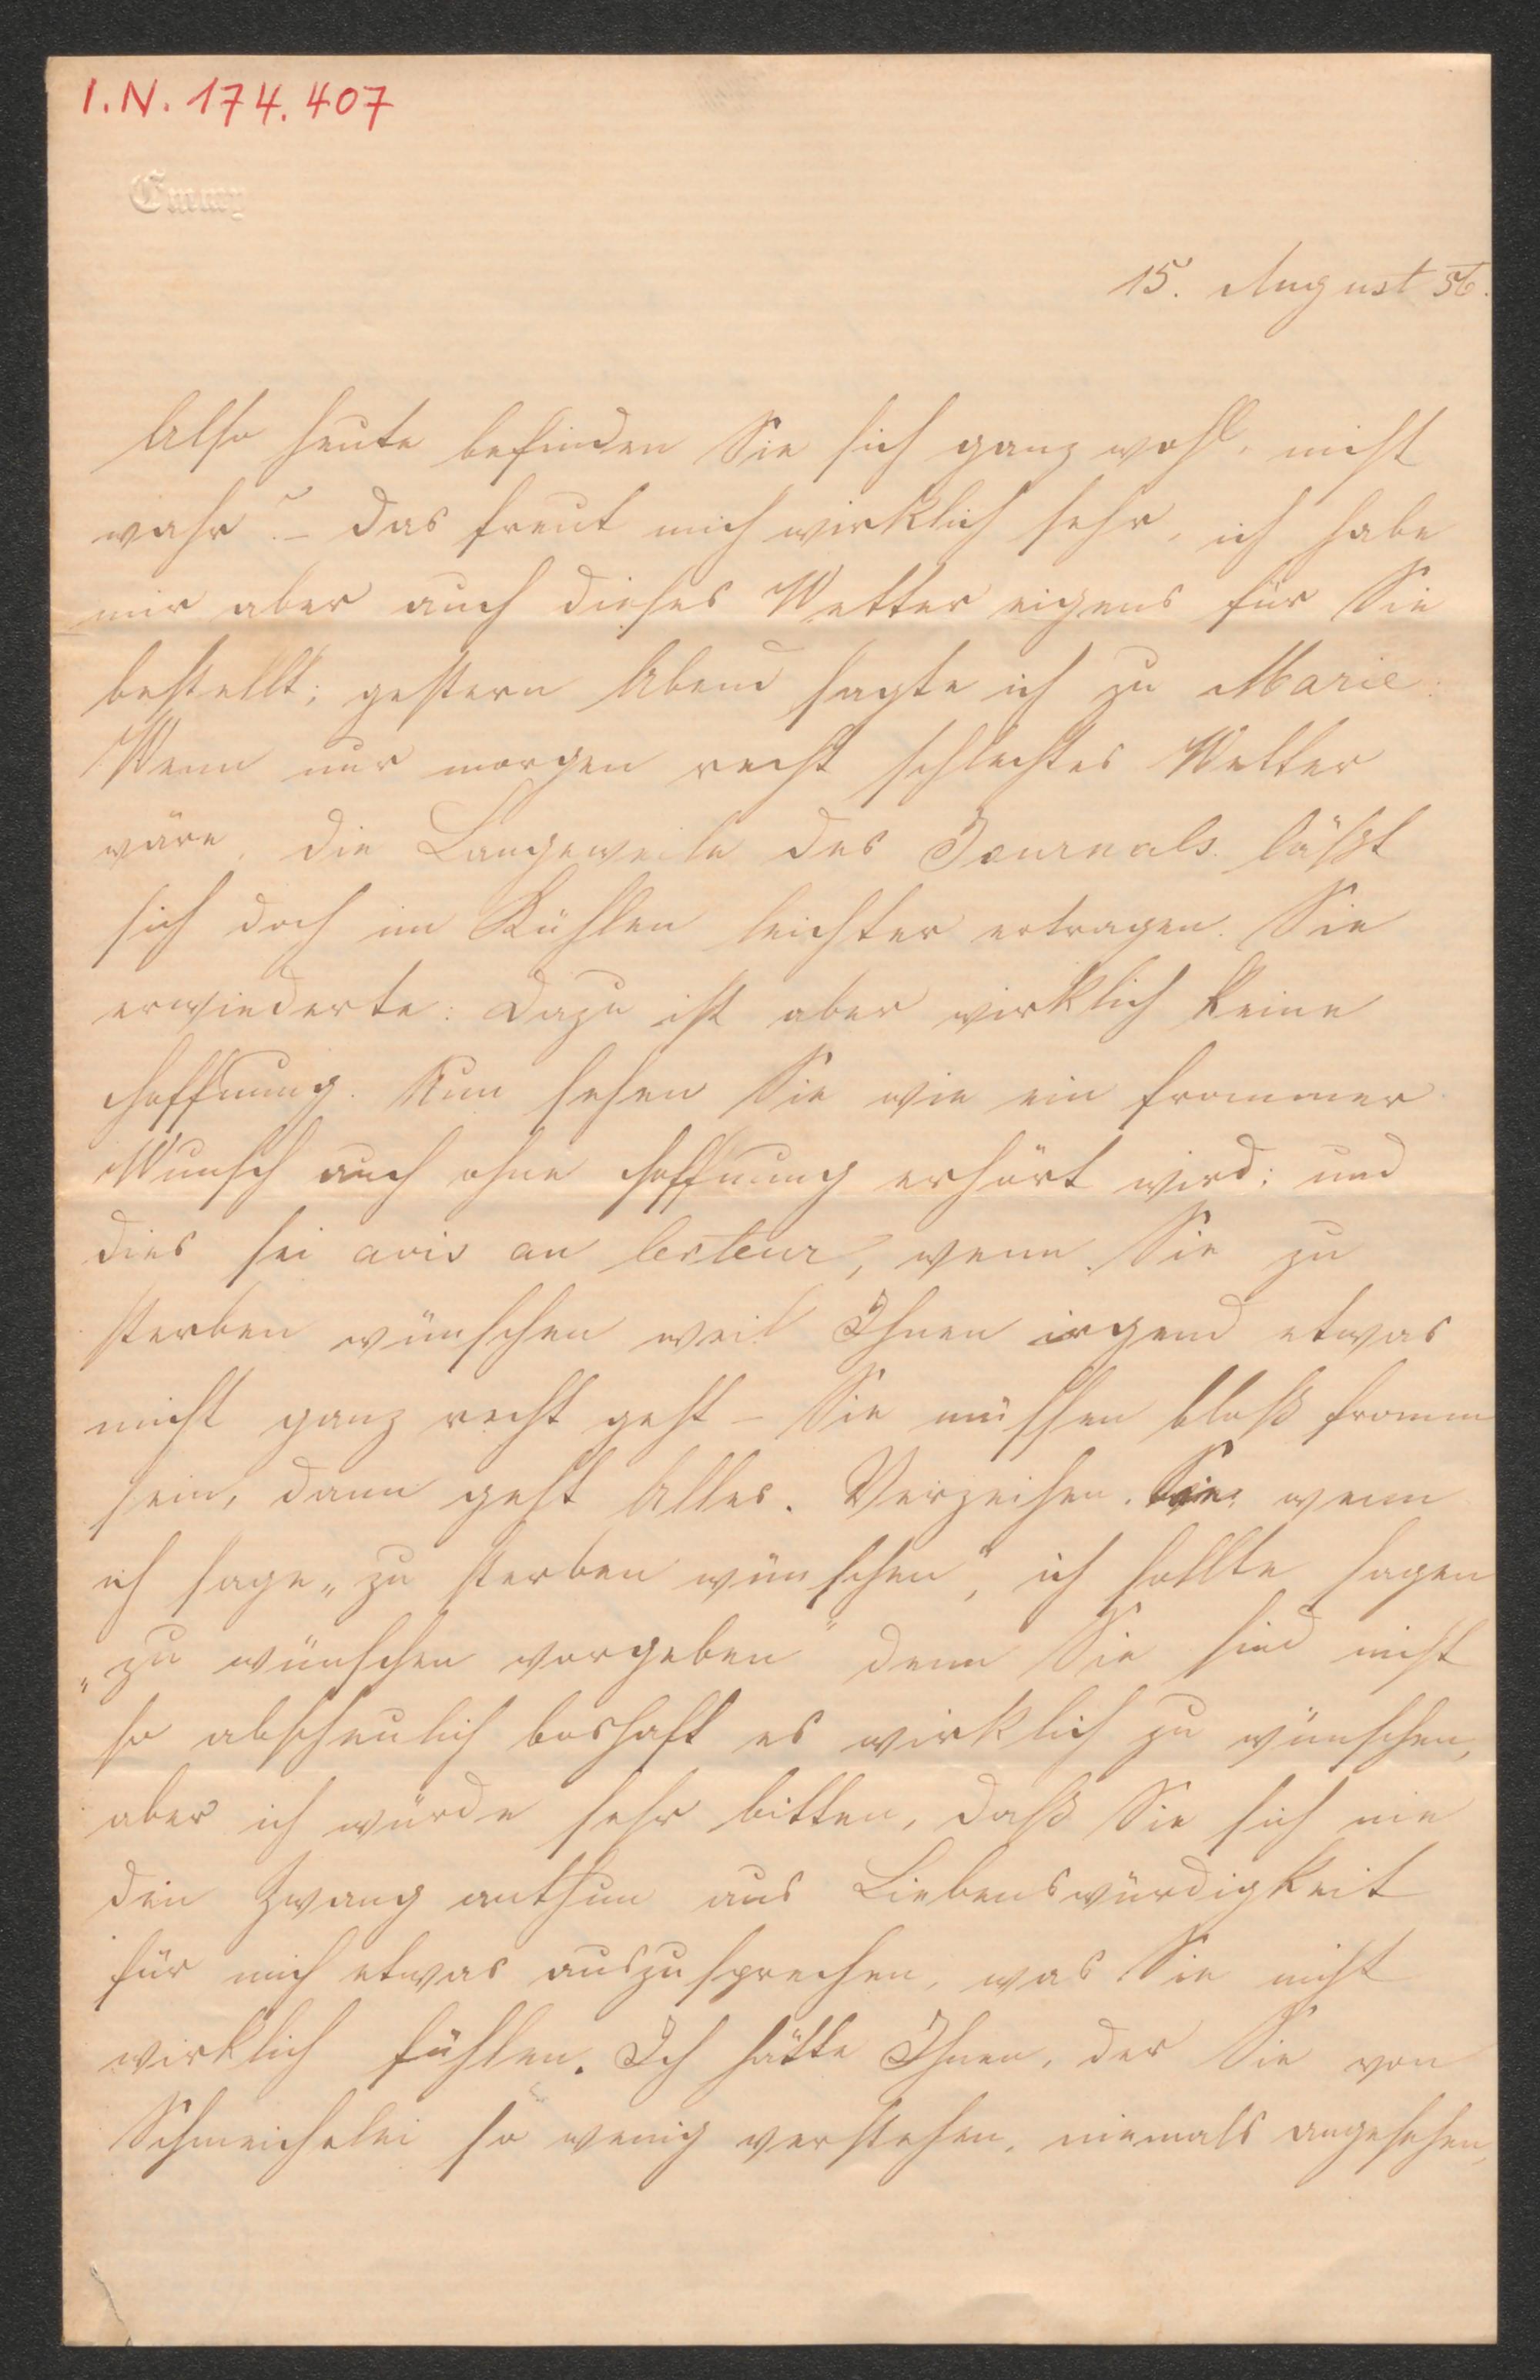 I.N. 174.407
Emmy
15. August 56.
Also heute befinden Sie sich ganz wohl, nicht
wahr? – das freut mich wirklich sehr, ich habe
mir aber auch dieses Wetter eigens für Sie
bestellt; gestern Abend sagte ich zu Marie:
Wenn nur morgen recht schlechtes Wetter
wäre, die Langeweile des Journals läßt
sich doch im Kühlen leichter ertragen. Sie
erwiederte: dazu ist aber wirklich keine
Hoffnung. Nun sehen Sie wie ein frommer
Wunsch auch ohne Hoffnung erhört wird; und
dies sei avis au lecteur, wenn Sie zu
sterben wünschen weil Ihnen irgend etwas
nicht ganz recht geht – Sie müssen bloß fromm
sein, dann geht Alles. Verzeihen Sie wenn
ich sage „zu sterben wünschen", ich sollte sagen
„zu wünschen vorgeben" denn Sie sind nicht
so abscheulich boshaft es wirklich zu wünschen,
aber ich würde sehr bitten, daß Sie sich nie
den Zwang anthun aus Liebenswürdigkeit
für mich etwas auszusprechen, was Sie nicht
wirklich fühlen. Ich hätte Ihnen, der Sie von
Schmeichelei so wenig verstehen, niemals angesehen,